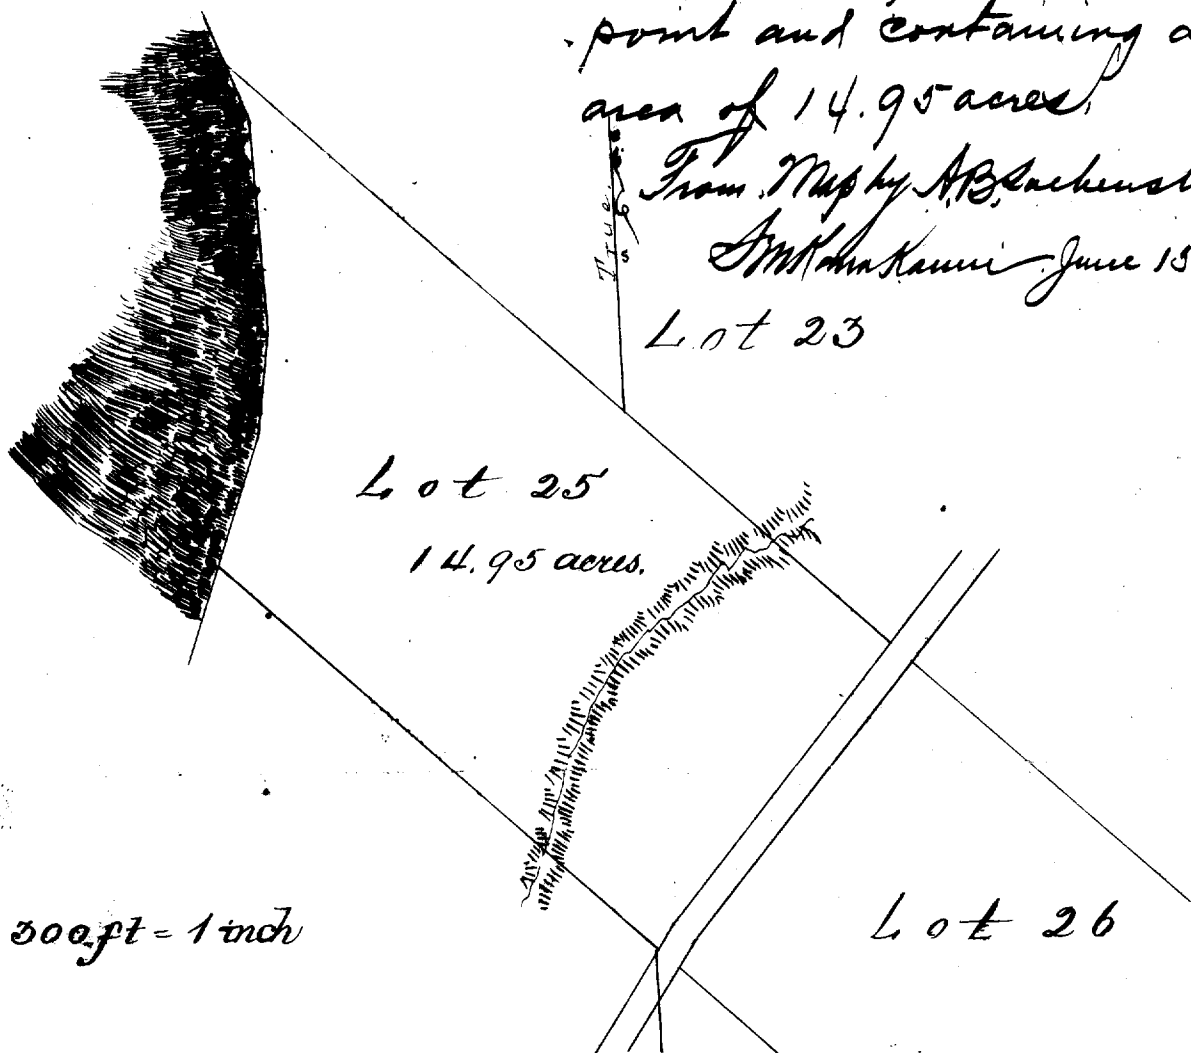 point and containing a
area of 14.95 acres.
From Map by A.B.
June 13
True
S
Lot 23
Lot 25
14.95 acres.
300 ft = 1 inch
Lot 26